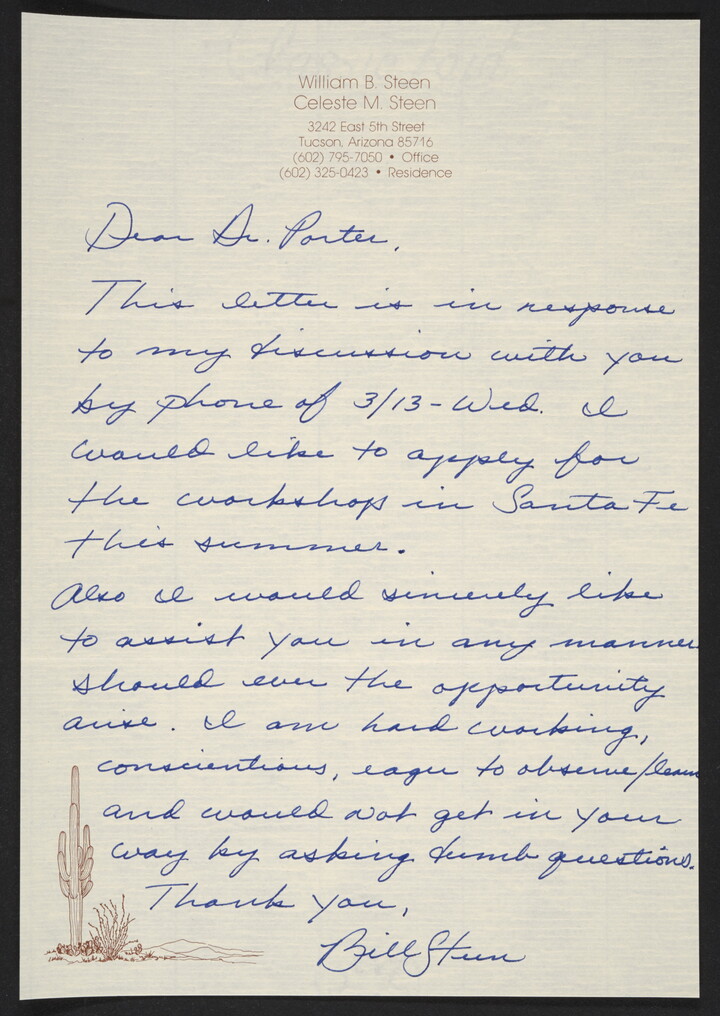 William B. Steen
Celeste M. Steen
3242 East 5th Street
Tucson, Arizona 85716
(602) 795-7050 • Office
(602) 325-0423 • Residence
Dear Dr. Porter,
This letter is in response
to my discussion with you
by phone of 3/13 - Wed. I
would like to apply for
the workshop in Santa Fe
this summer.
Also I would sincerely like
to assist you in any manner
should ever the opportunity
arise. I am hard working,
conscientious, eager to observe/learn
and would not get in your
way by asking dumb questions.
Thank you,
Bill Steen